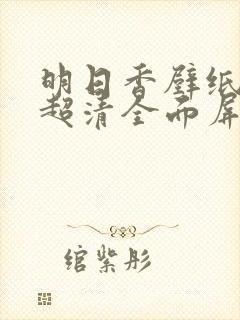 明日香壁纸
超清全面屏
绾紫彤